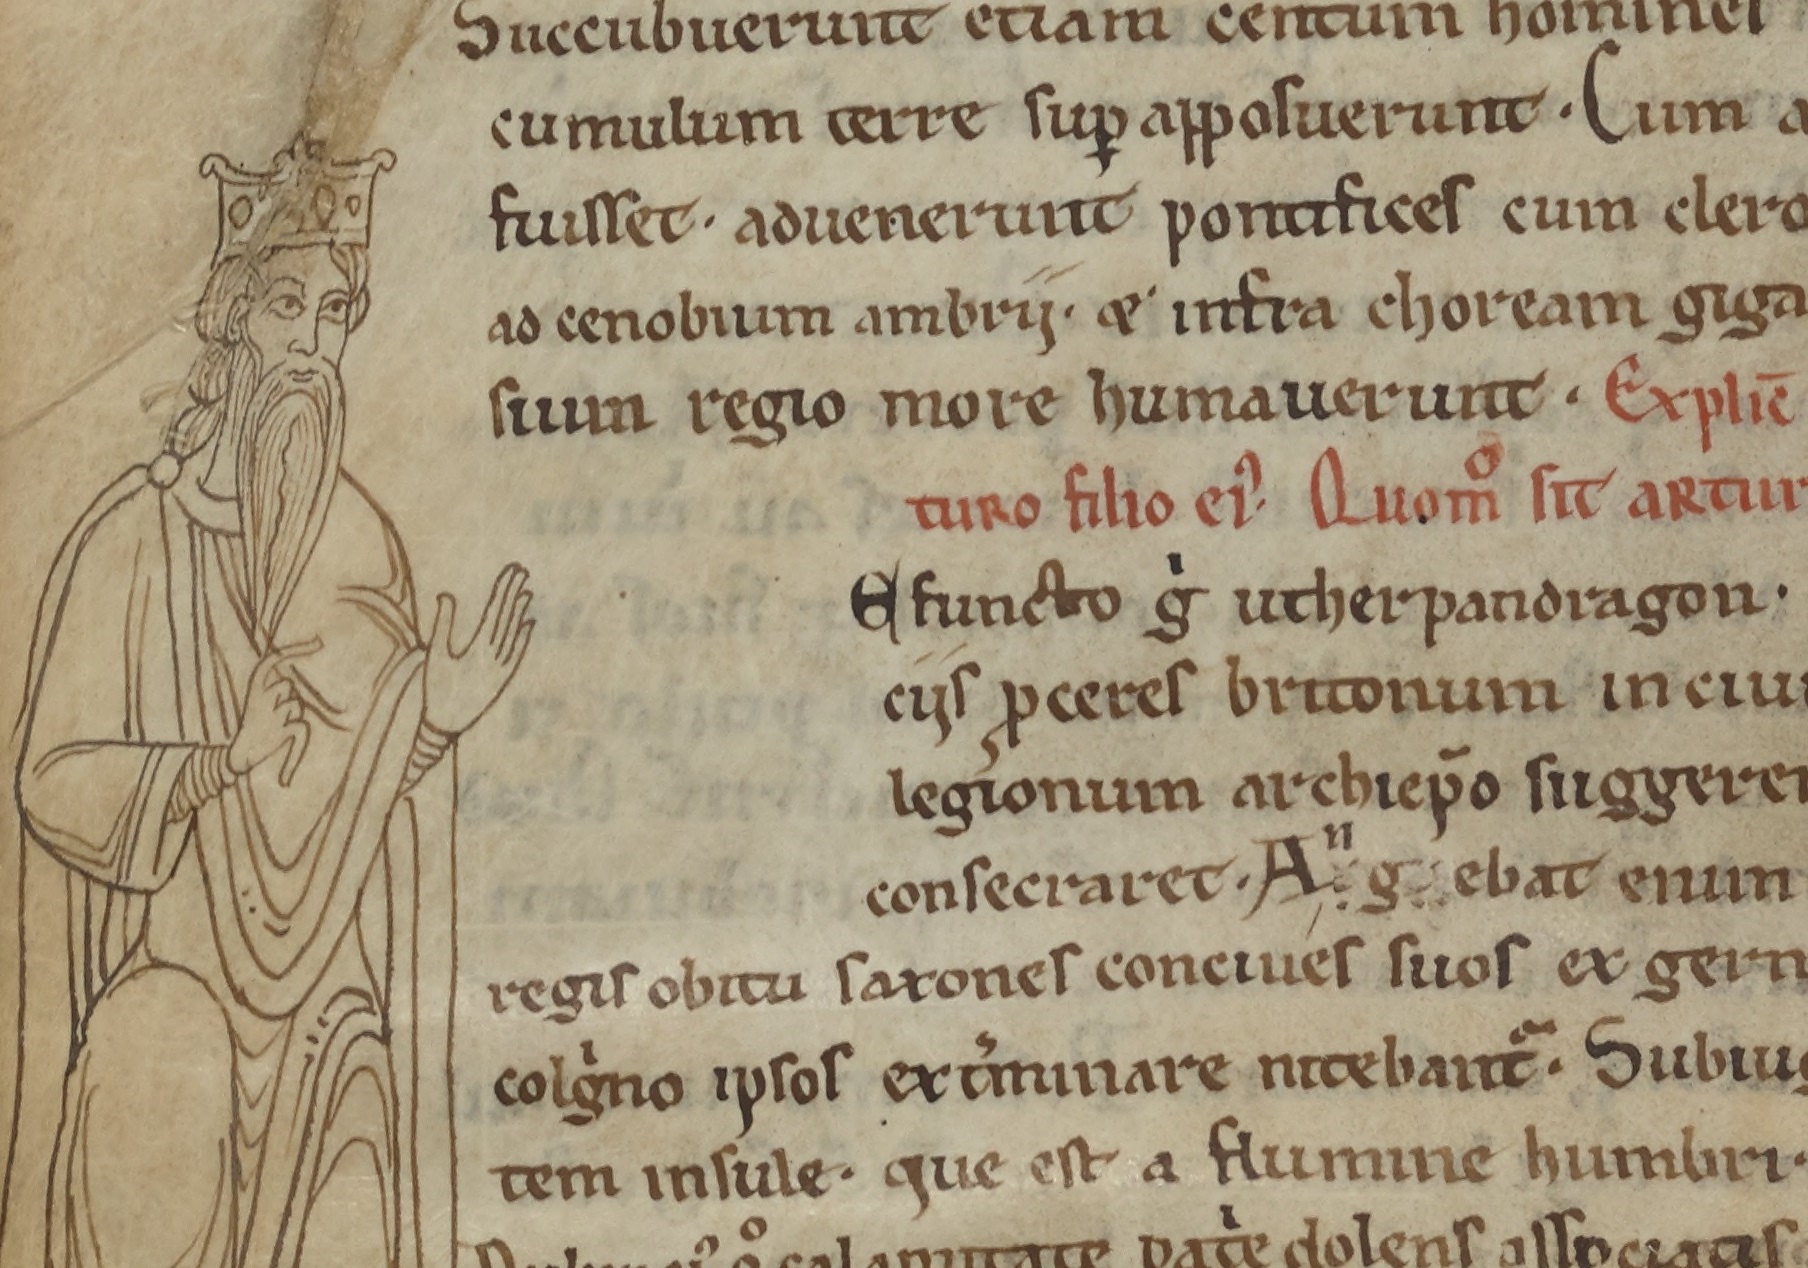 Succubuerunt etiam centum homines
cumulum terre sup apposuerunt. Cum a
fuisset. aduenerunt pontifices cum clero
ad cenobium ambrij. & infra choream giga
sium regio more humauerunt. Explic̄
turo filio ei⁹. Quom̊ sit artur
Efuncto gͥ utherpandragon.
cijs ꝓceres britonum in ciui
legionum archiep̄o suggeren
consecraret. Aⁿ g ebat enim
regis obitu saxones conciues suos ex germ
colgͥno ipsos ext̓minare nitebant᷑. Subiug
tem insule. que est a flumine humbri.
calamitate pat̓e dolens associatis